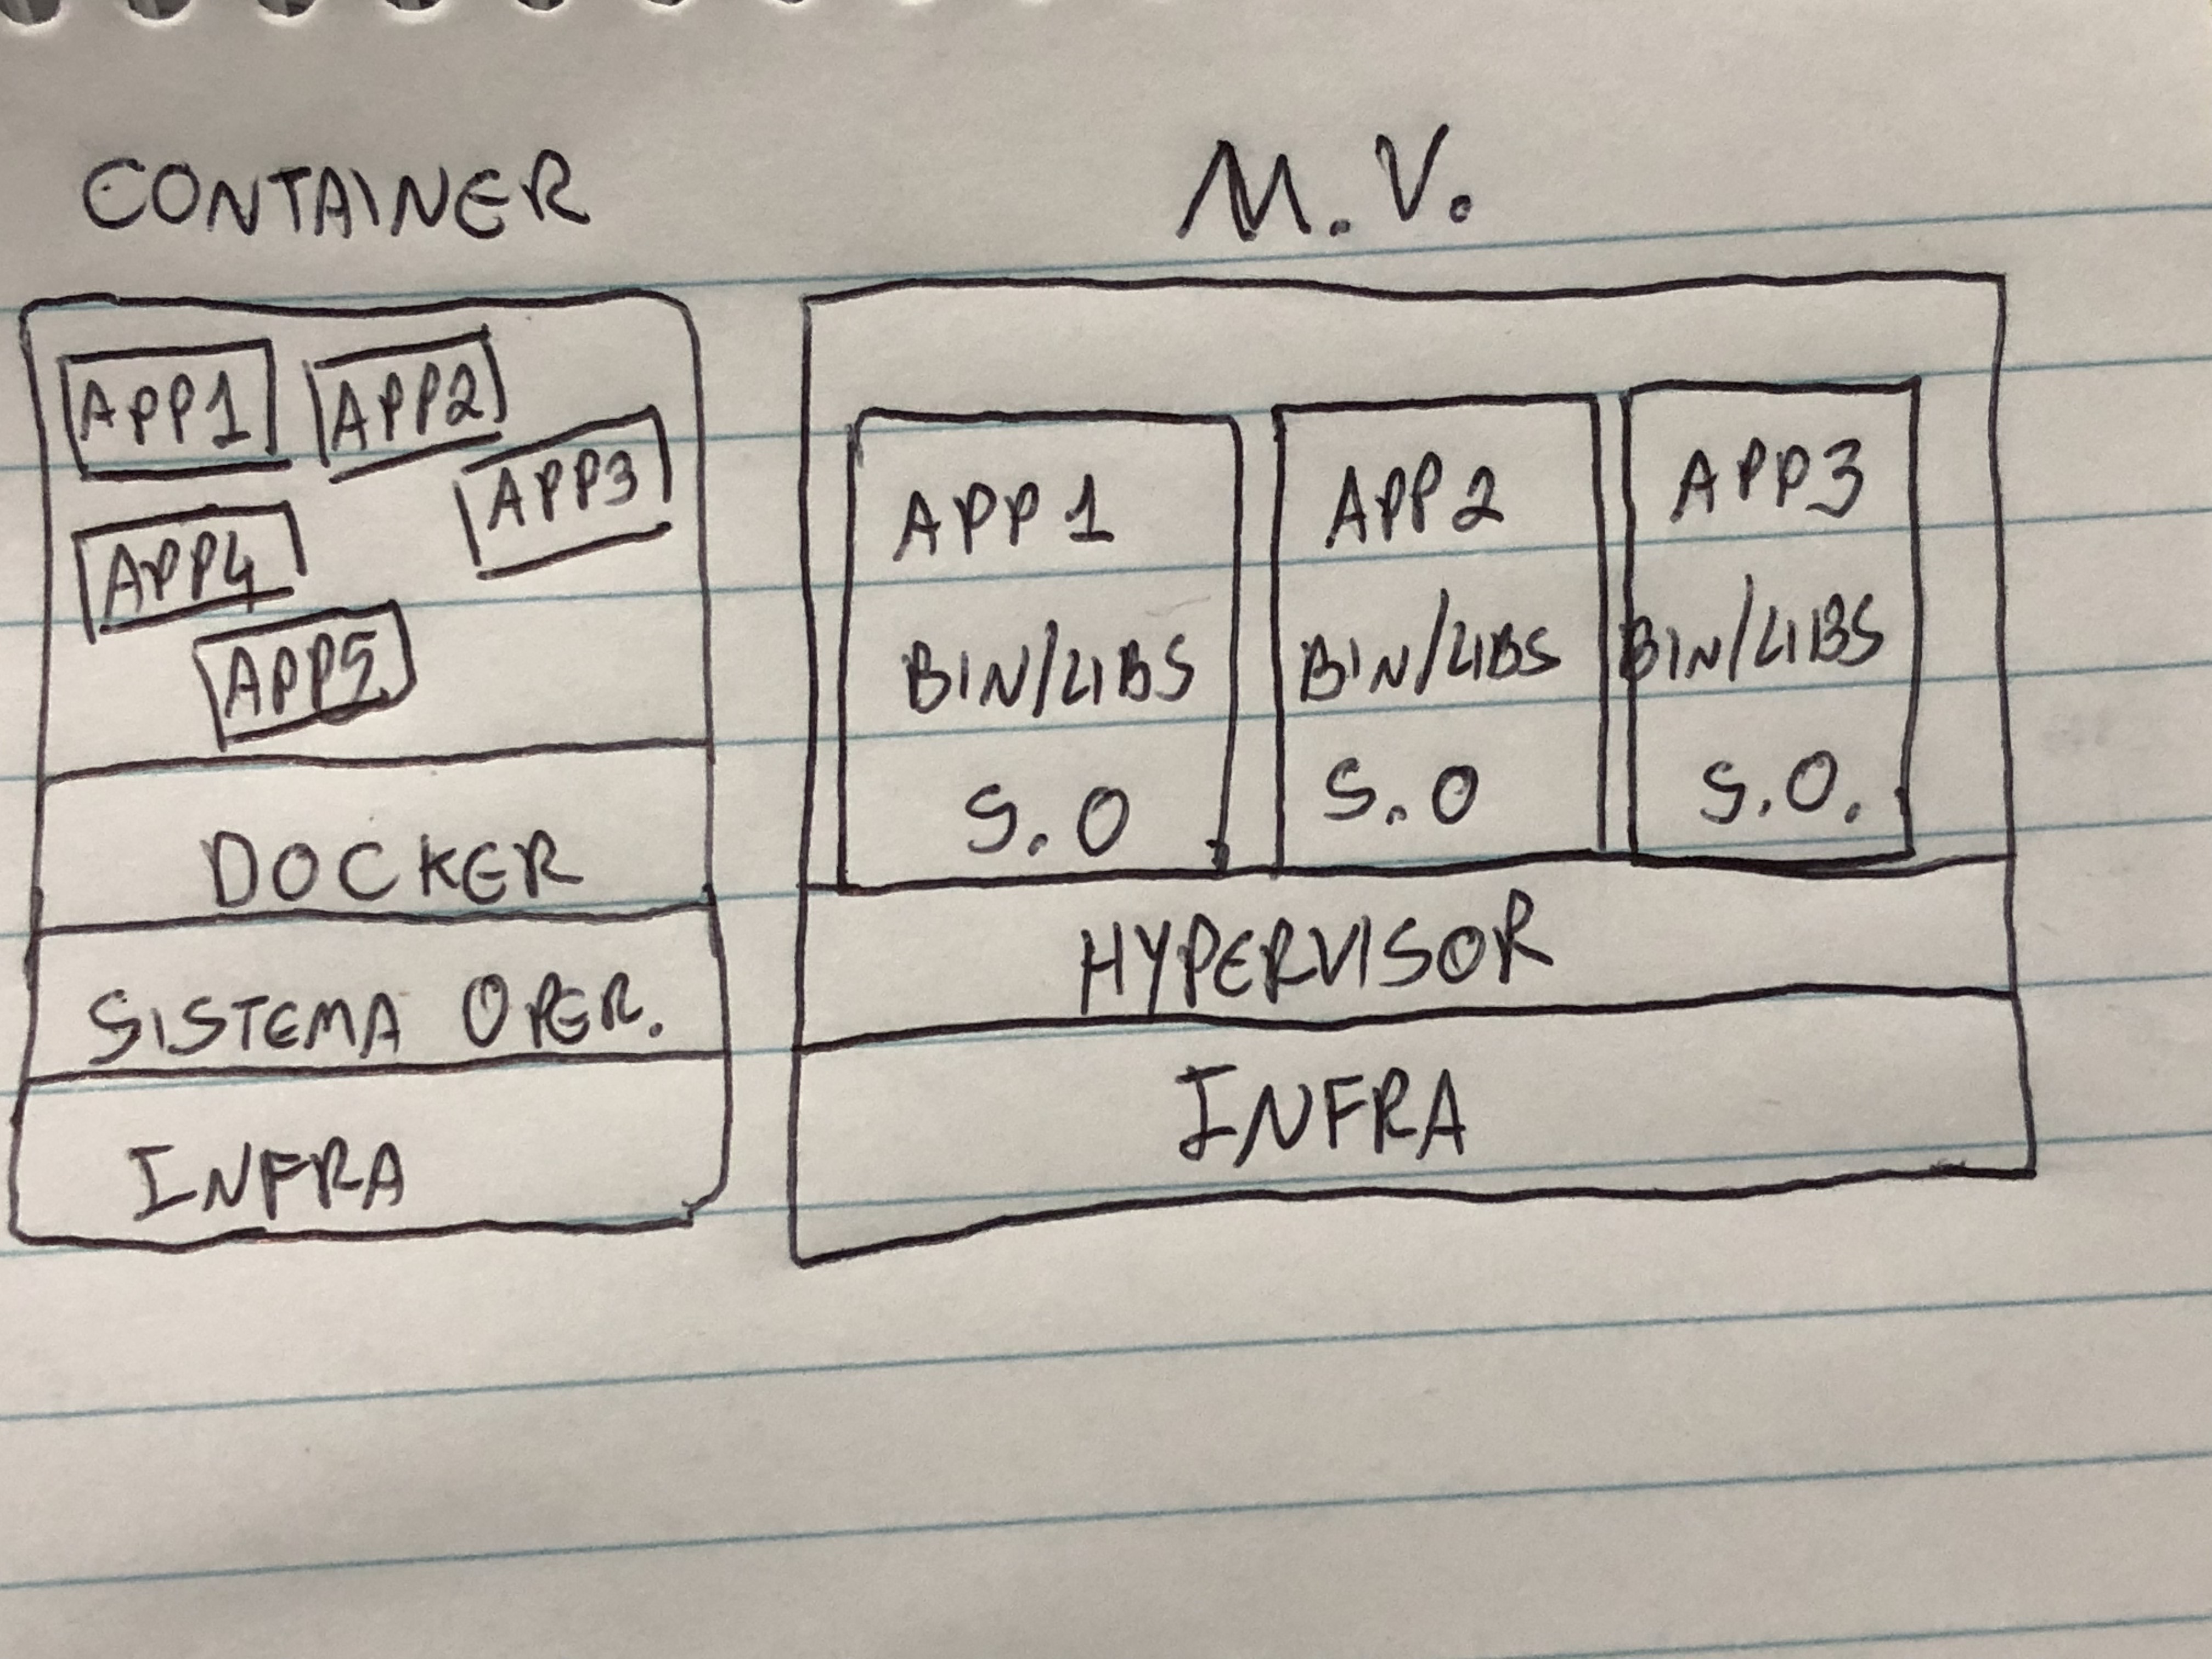 CONTAINER
APP1
APP2
APP3
APP4
APP5
DOCKER
SISTEMA OPER.
INFRA
M.V.
APP 1
BIN/LIBS
S.O
APP 2
BIN/LIBS
S.O
APP3
BIN/LIBS
S.O.
HYPERVISOR
INFRA